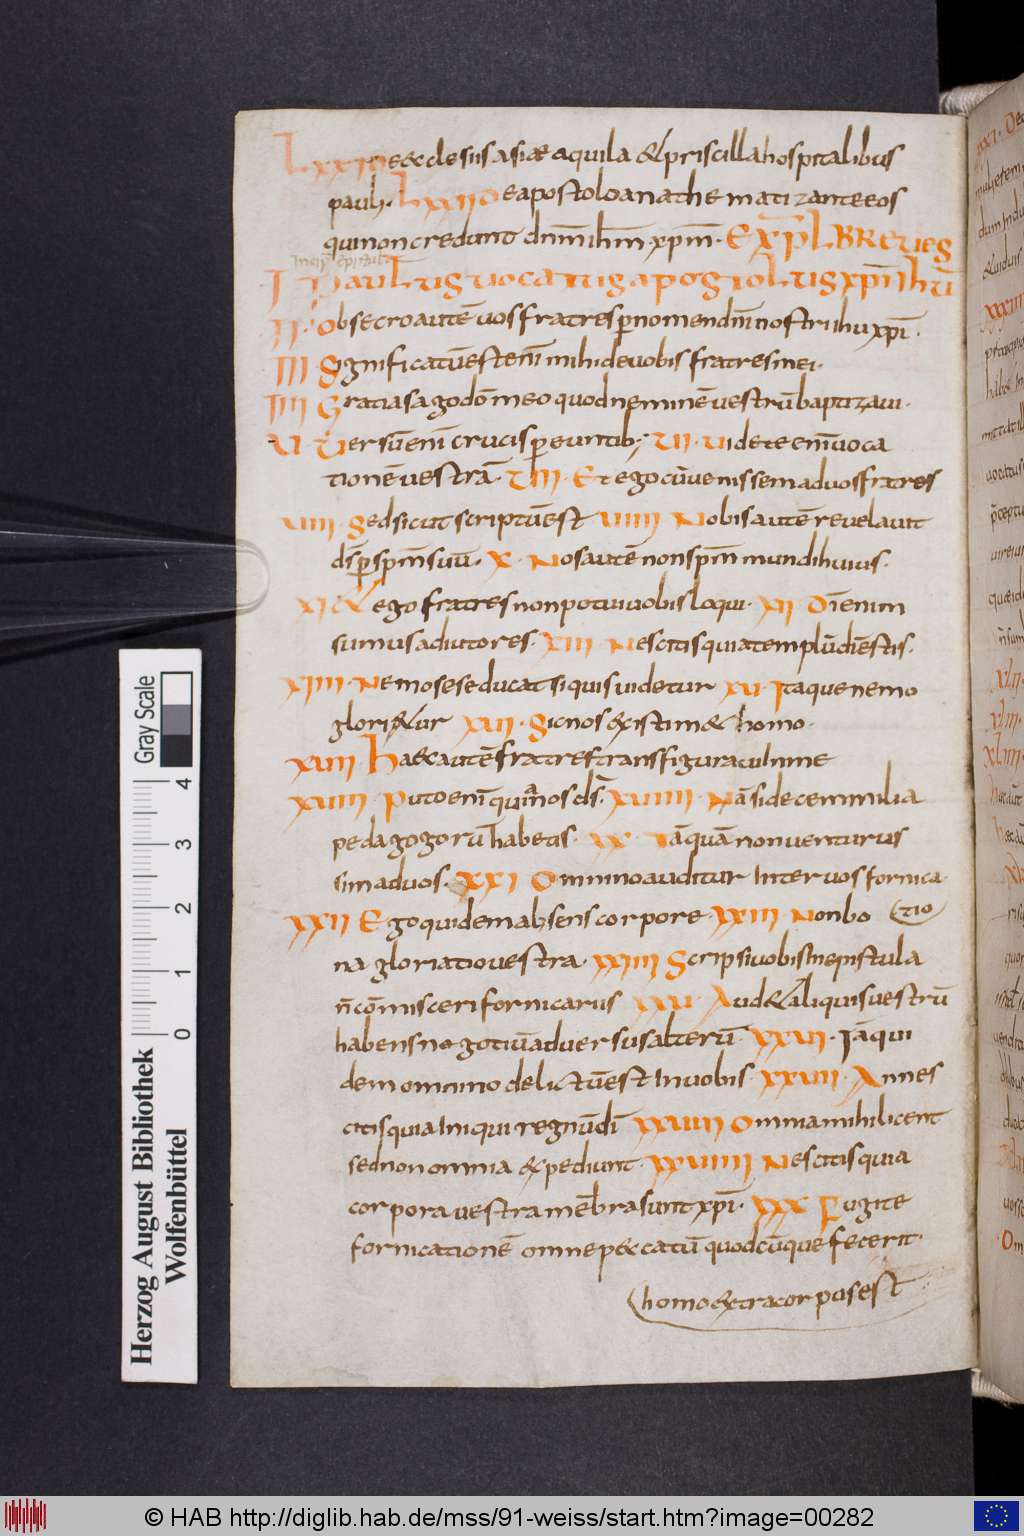 LXXI De ecclesiis asiae aquila & priscilla hospitalibus
pauli. LXXII De apostolo anathematizante eos
qui non credunt dnm ihm xpm. EXPL BREVES
Incip capitula
I Paulus vocatus apostolus xpi ihu
II Obsecro autē vos fratres p nomen dni nostri ihu xpi.
III Significatū est enī mihi de vobis fratres mei.
IIII Gratias ago dō meo quod neminē vestrū baptizavi.
V Verbū enī crucis pereuntib; VII Videte enī voca
tionē vestrā. VIII Et ego cū venissem ad vos fratres
VIIII Sed sicut scriptū est VIIII Nobis autē revelavit
ds p spm suū. X Nos autē non spm mundi huius.
XI & ego fratres non potui vobis loqui. XII Dī enim
sumus adiutores. XIII Nescitis quia templū dī estis.
XIIII Nemo se seducat si quis videtur XVI Itaque nemo
glori&ur XVII Sic nos existim& homo.
XVIII Haec autē fratres transfiguravi in me
XVIIII Puto enī quia nos ds XVIIII Nā si decem milia
pedagogorū habetis. XX Tāquā non venturus
sim ad vos. XXI Omnino auditur inter vos fornica
XXII Ego quidem absens corpore XXIII Non bo (tio
na gloriatio vestra XXIIII Scripsi vobis in epistula
ñ cōmisceri fornicariis XXV Aud& aliquis vestrū
habens negotiū adversus alterū XXVI Iā qui
dem omnino delictū est in vobis XXVII An nes
citis quia iniqui regnū dī XXVIII Omnia mihi licent
sed non omnia expediunt XXVIIII Nescitis quia
corpora vestra mēbra sunt xpi. XXX Fugite
fornicationē omne peccatū quodcūque fecerit
(homo extra corpus est
Herzog August Bibliothek
Wolfenbüttel
Gray Scale
0 1 2 3 4
© HAB http://diglib.hab.de/mss/91-weiss/start.htm?image=00282